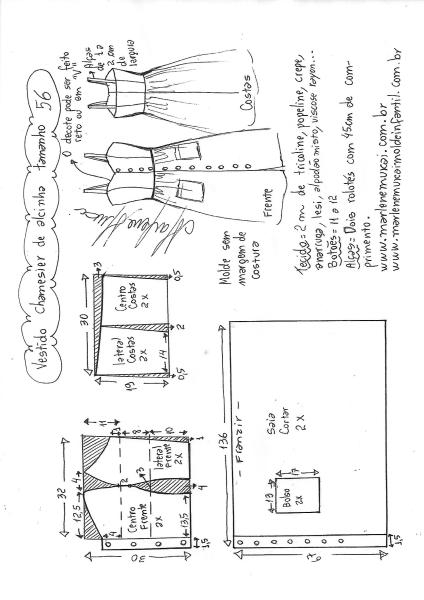 Vestido chamesier de alcinha tamanho 56
O decote pode ser feito
reto ou em "V"
Alças
de 1 a
2 cm
de
largura
Costas
Frente
Molde sem
margem de
costura
Tecido = 2 m de tricoline, popeline, crepe,
anarruga, lesi, algodão misto, viscose rayon...
Botões = 11 a 12
Alças = Dois rolotês com 45cm de com-
primento.
www.marlenemukai.com.br
www.marlenemukaimoldeinfantil.com.br
30
3
Centro
Costas
2x
lateral
Costas
2x
19
14
2
0,5
0,5
32
12,5
4
11
4
2
3
8
10
Centro
Frente
2x
lateral
Frente
2x
13,5
4
1
1,5
136
- Franzir -
Saia
Cortar
2x
17
13
Bolso
2x
1,5